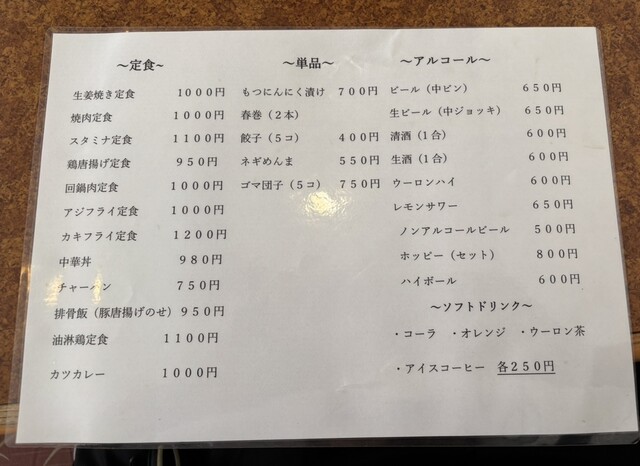 ～定食～
生姜焼き定食 １０００円
焼肉定食 １０００円
スタミナ定食 １１００円
鶏唐揚げ定食 ９５０円
回鍋肉定食 １０００円
アジフライ定食 １０００円
カキフライ定食 １２００円
中華丼 ９８０円
チャーハン ７５０円
排骨飯（豚唐揚げのせ）９５０円
油淋鶏定食 １１００円
カツカレー １０００円
～単品～
もつにんにく漬け ７００円
春巻（２本）
餃子（５コ） ４００円
ネギめんま ５５０円
ゴマ団子（５コ） ７５０円
～アルコール～
ビール（中ビン） ６５０円
生ビール（中ジョッキ） ６５０円
清酒（１合） ６００円
生酒（１合） ６００円
ウーロンハイ ６００円
レモンサワー ６５０円
ノンアルコールビール ５００円
ホッピー（セット） ８００円
ハイボール ６００円
～ソフトドリンク～
・コーラ ・オレンジ ・ウーロン茶
・アイスコーヒー 各２５０円